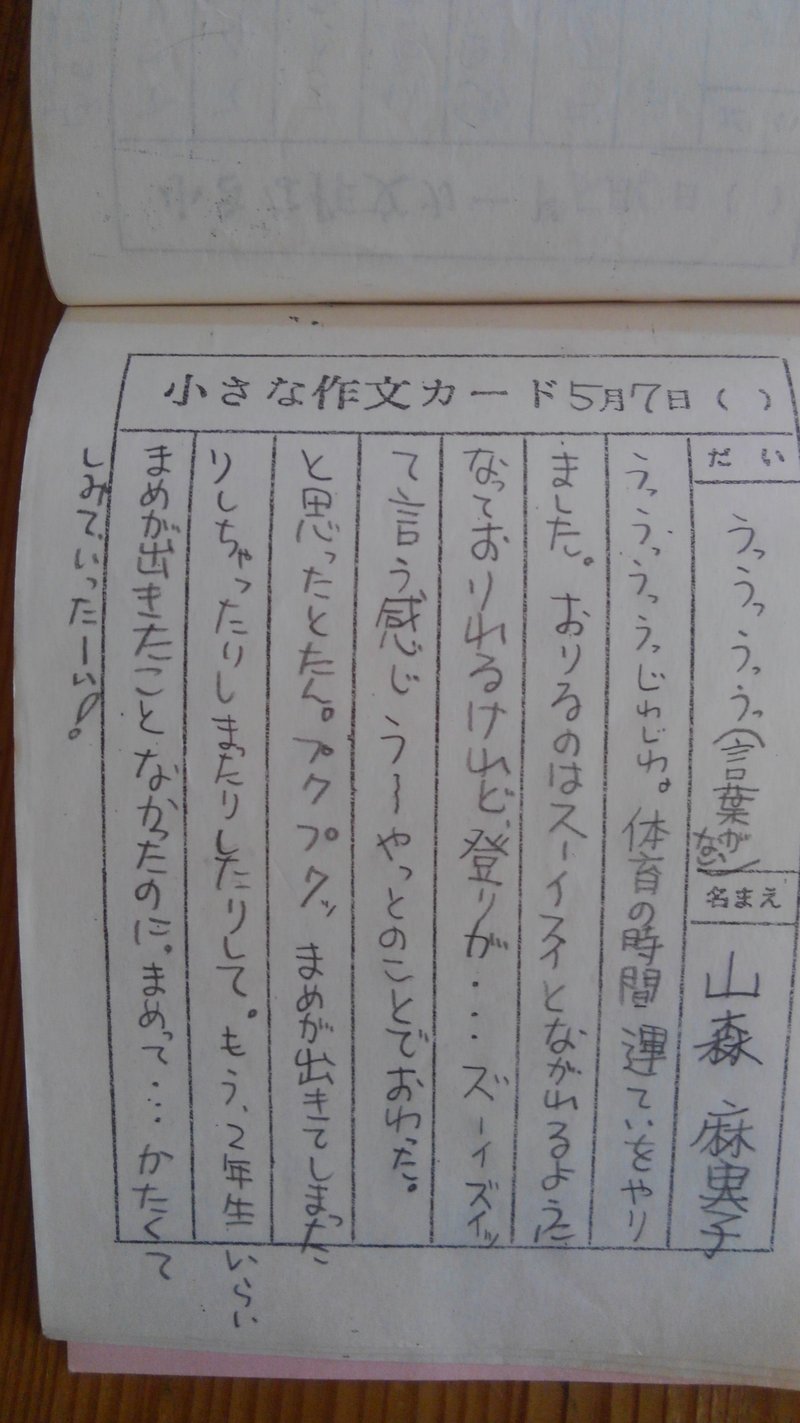 小さな作文カード 5月7日( )
だい
うっうっうっうっ(言葉がない)
名まえ
山森 麻典子
うっうっうっうっじゎじゎ。体育の時間 運ていをやり
ました。おりるのはスーイスイとながれるように
なっておりれるけれど、登りが・・・ズーイズイッ
て言う感じ う〜やっとのことでおわった。
と思ったとたん。プクプクッ まめが出きてしまった
りしちゃったりしまたりしたりして。もう、2年生いらい
まめが出きたことなかったのに。まめって・・・かたくて
しみていったーい!。